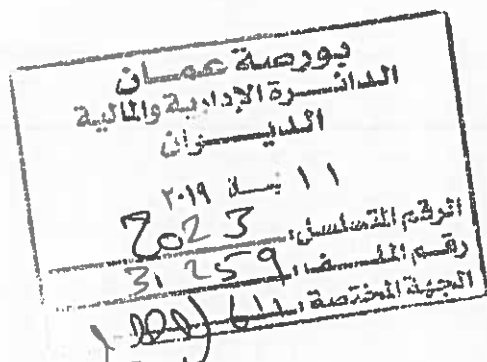 بورصة عمان
الدائرة الإدارية والمالية
الديوان
١١ نيسان ٢٠١٩
الرقم المتسلسل: 2023
رقم الملف: 31259
الجهة المختصة: